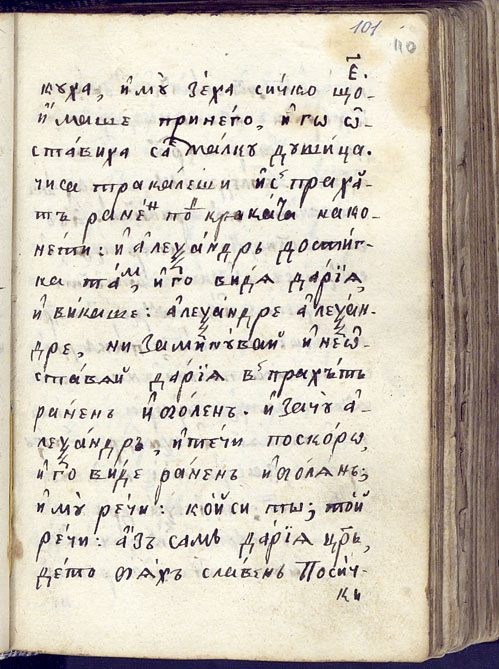 101
110
Е҃.
куха, и҆мꙋ̀ зе́ха сичко що̀-
и҆маше при него, и҆ го ѡ҆-
ставиха са малку душица.
ранен по крака́та на ко-
нети: и҆ а҆леѯа́ндръ дости́г-
на та́м, и҆ го виде да́рїа,
и҆ викаше: а҆леѯа́ндре а҆леѯа́н-
дре, ни замину́вай и҆ не ѡ҆-
ста́вѧй да́рїа в прахътъ
ра́ненъ и҆ ѡго́ленъ. и҆ зачу̀ а҆-
леѯа́ндръ, и҆ те́чи поско́рѡ,
и҆ го ви́де ра́ненъ и҆ ѡго́лѧнъ;
и҆ мꙋ̀ ре́чи: ко́йси ты; то́й
ре́чи: а҆́зъ самъ да́рїа цр҃ь,
дето бѧхъ сла́венъ По си́ч-
ки